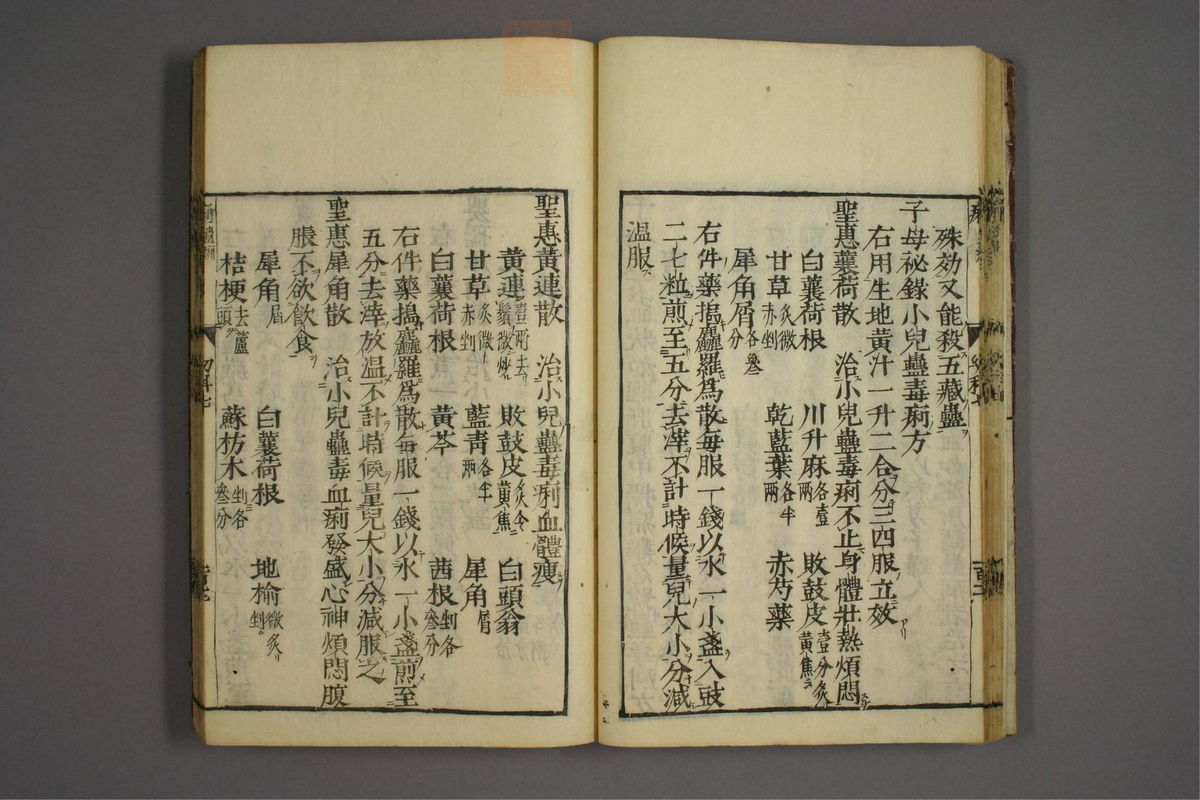 殊効又能殺五藏蠱
子母祕錄小兒蠱毒痢方
右用生地黃汁一升二合分三四服立效
聖惠蘘荷散 治小兒蠱毒痢不止身體壯熱煩悶
白蘘荷根 川升麻各壹兩 敗鼓皮壹分炙黃焦
甘草炙微赤剉 乾藍葉各半兩 赤芍藥
犀角屑各叁分
右件藥搗麤羅為散每服一錢以水一小盞入豉
二七粒煎至五分去滓不計時候量兒大小分減
温服
聖惠黃連散 治小兒蠱毒痢血體瘦
黃連壹兩去鬚微炒 敗鼓皮炙令黃焦 白頭翁
甘草炙微赤剉 藍青各半兩 犀角屑
白蘘荷根 黃芩 茜根剉各叁分
右件藥搗麤羅為散每服一錢以水一小盞煎至
五分去滓放温不計時候量兒大小分減服之
聖惠犀角散 治小兒蠱毒血痢發盛心神煩悶腹
脹不欲飲食
犀角屑 白蘘荷根 地榆微炙剉
桔梗去蘆頭 蘇枋木剉各叁分
幼科七